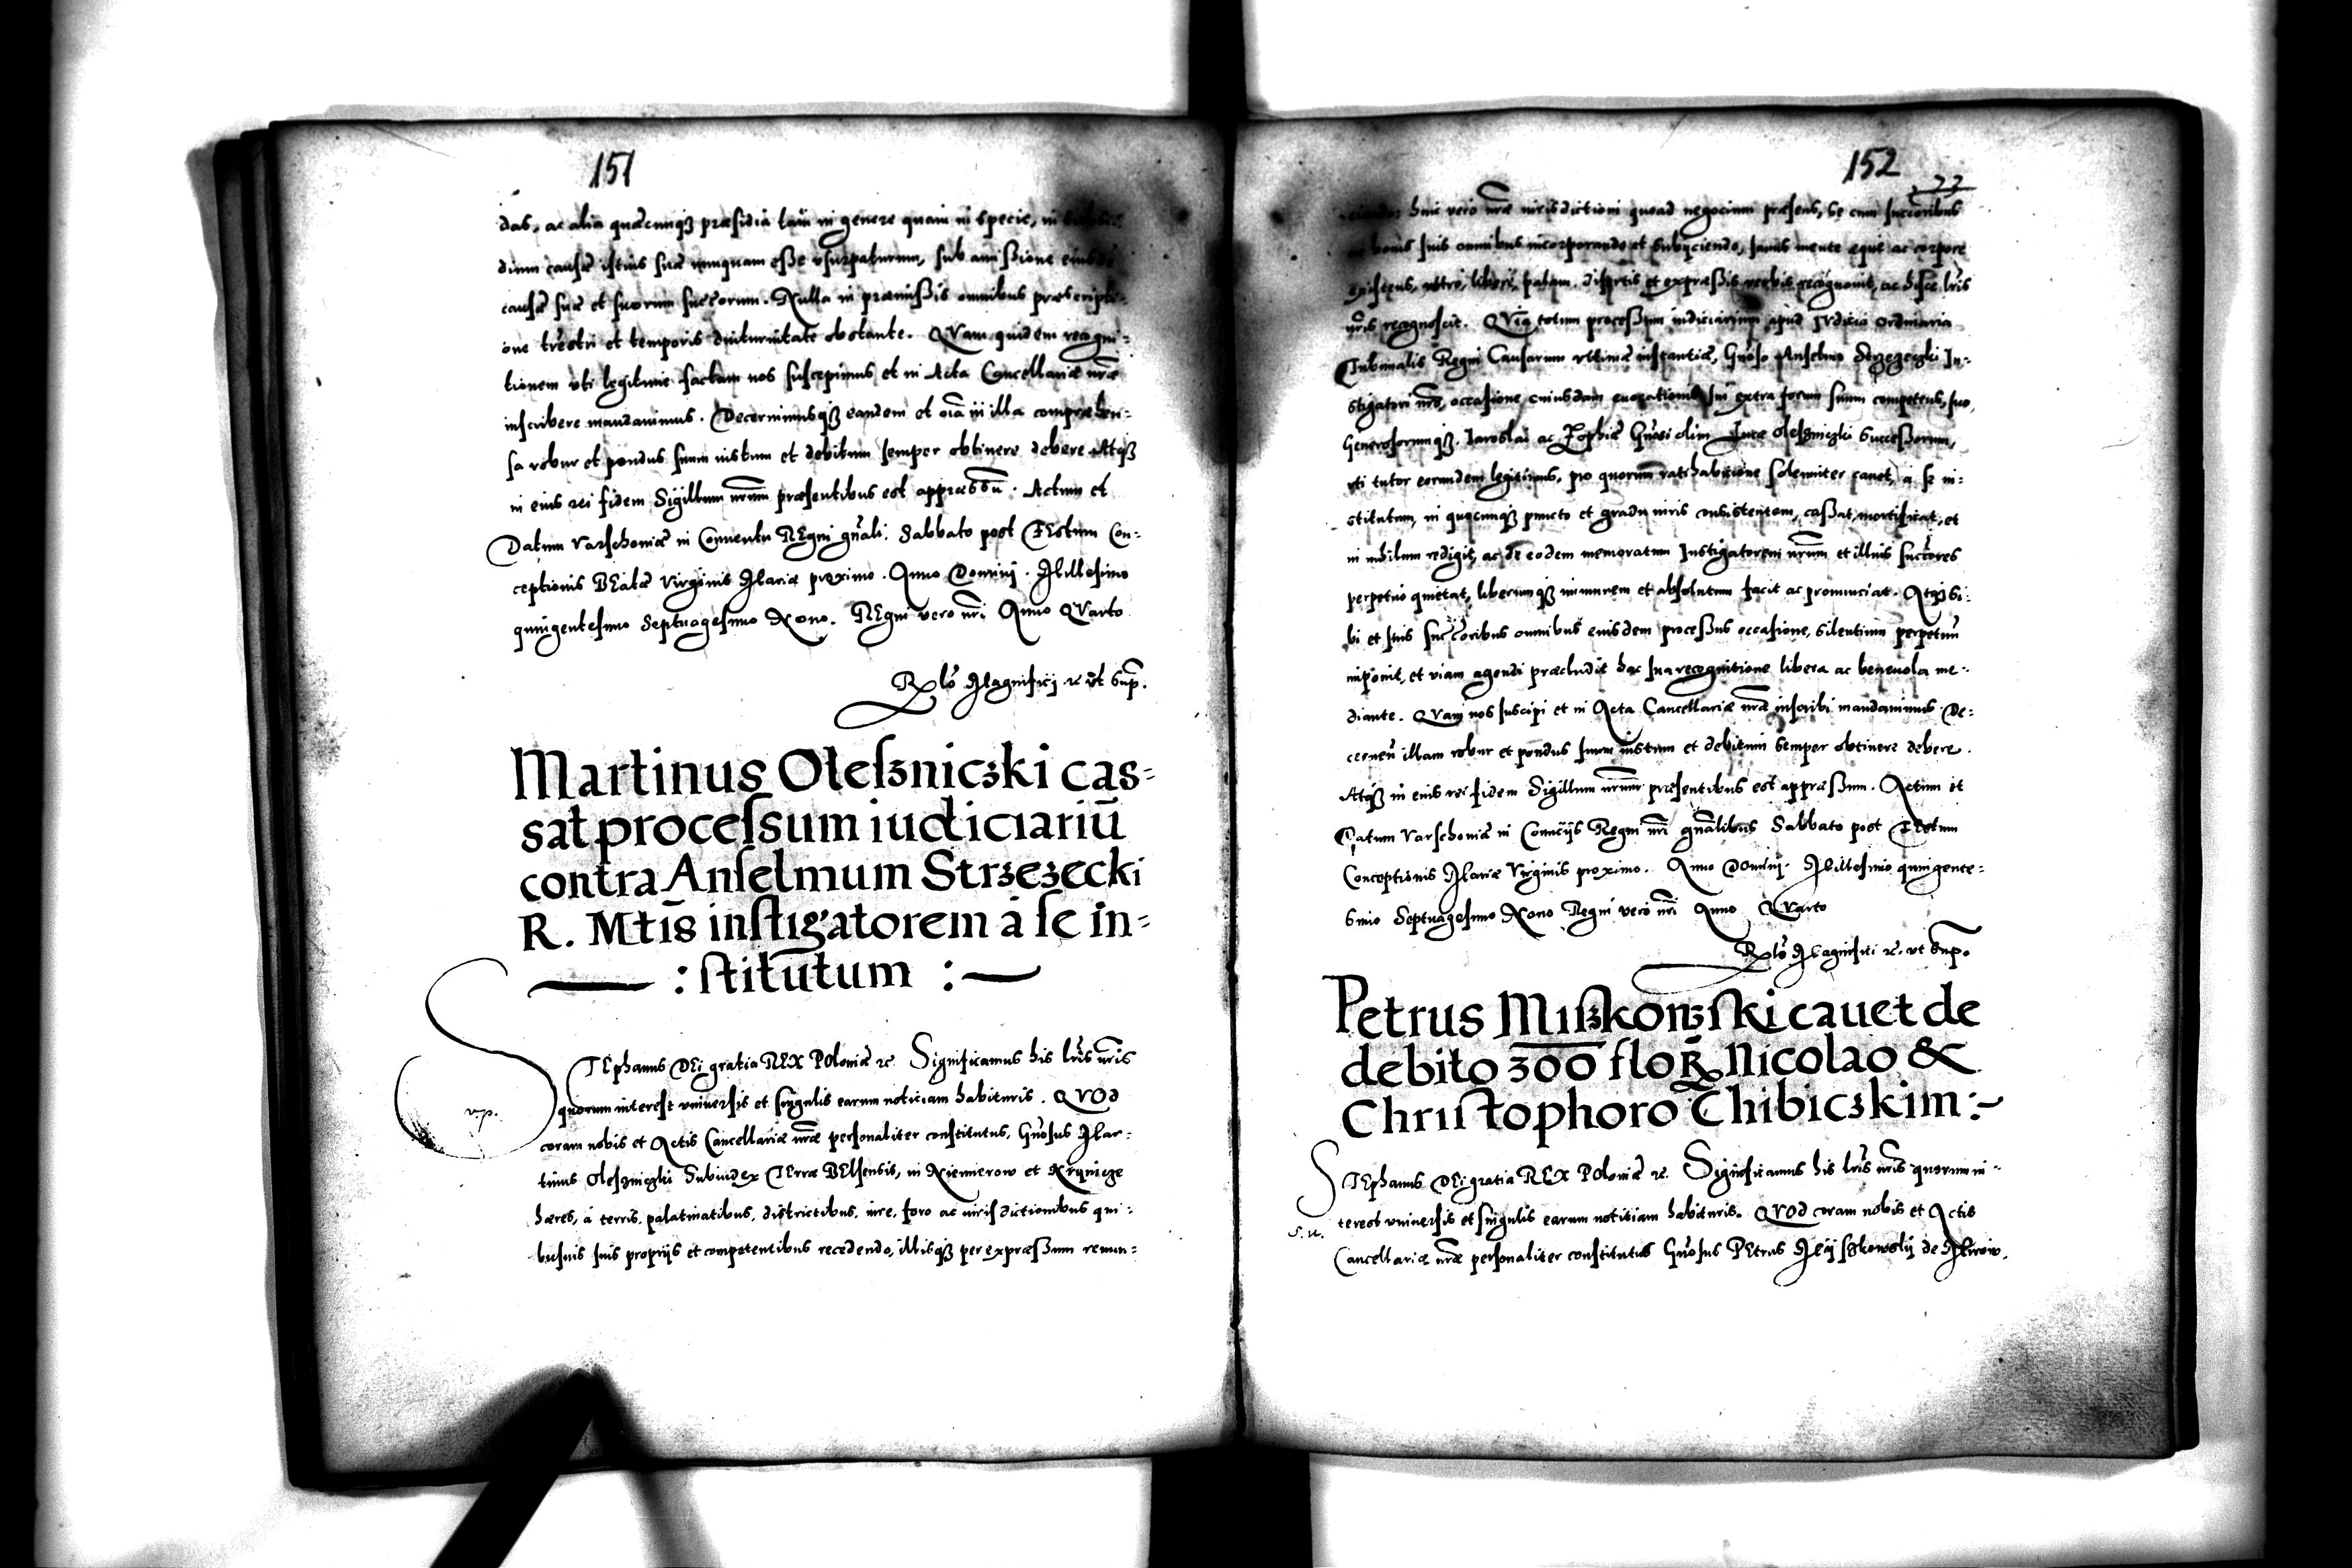 151
das, ac alia quæcunqꝫ præsidia tam in genere quam in specie, in
dium causæ istius suæ nunquam esse vsurpaturum, sub amissione eiusdē
causæ suæ et suorum succorum. Nulla in præmissis omnibus præscripti-
one trestri et temporis diuturnitate obstante. QVam quidem recogni-
tionem vti legitime factam nos suscepimus et in Acta Cancellariæ nr̃æ
inscribere mandauimus. Decernimusqꝫ eandem et oĩa in illa compræhen-
sa robur et pondus suum iustum et debitum semper obtinere debere Atqꝫ
in eius rei fidem Sigillum nr̃um præsentibus est appræssũ. Actum et
Datum Varschouiæ in Conuentu REgni gñali. Sabbato post FEstum Con-
ceptionis BEatæ Virginis Mariæ proximo. Anno Dominj. Millesimo
quingentesimo Septuagesimo Nono. REgni vero nr̃i Anno QVarto
Rlõ Magnificj ꝛc vt Sup̃.
Martinus Olesʒnicʒki cas-
sat processum iudiciariũ
contra Anselmum Strʒeʒecki
R. Mtis̃ instigatorem à se in-
: stitutum :
STEphanus DEi gratia REX POloniæ ꝛc Significamus his lr̃is nr̃is
quorum interest vniuersis et singulis earum noticiam habituris. QVOd
v.p.
coram nobis et Actis Cancellariæ nr̃æ personaliter constitutus, Gñosus Mar-
tinus Oleszniczki Subiudex TErræ BElsensis, in Niemierow et Krynicze
hæres, à terris, palatinatibus, districtibus, iure, foro ac iurisdictionibus qui-
busuis suis proprijs et competentibus recedendo, illisqꝫ per expræssum renun-
152
77
ciando: huic vero nr̃æ iurisdictioni quoad negocium præsens, se cum succoribus
bonis suis omnibus incorporando et subijciendo, sanus mente eque ac corpore
existens, vltro, libere, palam, disertis et expræssis verbis recognouit, ac hisce lr̃is
nr̃is recognoscit. QVia totum processum iudiciarium apud IVdicia Ordinaria
Tribunalis Regni Causarum vltimæ instantiæ, Gñoso Anselmo Strzezeczki In-
stigatori nr̃o, occasione cuiusdam euocationis sui extra forum suum competens, suo,
Generosorumqꝫ. Iaroslai ac Zophiæ Gñosi olim Oleszniczki Successorum,
vti tutor eorundem legitimus, pro quorum ratihabitione solemniter cauet, à se in-
stitutum, in quocunqꝫ puncto et gradu iuris consistentem, cassat, mortificat, et
in nihilum redigit, ac de eodem memoratum Instigatorem nr̃um et illius succores
perpetuo quietat, liberumqꝫ immunem et absolutum facit ac pronunciat. Atqꝫ Si-
bi et suis succoribus omnibus eiusdem processus occasione, silentium perpetuũ
imponit, et viam agendi præcludit hac sua recognitione libera ac beneuola me-
diante. QVam nos suscipi et in Acta Cancellariæ nr̃æ inscribi mandauimus De-
cerneñ illam robur et pondus suum iustum et debitum semper obtinere debere.
Atqꝫ in eius rei fidem Sigillum nr̃um præsentibus est appræssum. Actum et
Datum Varschouiæ in Comicijs Regni nr̃i gñalibus Sabbato post FEstum
Conceptionis Mariæ Virginis proximo. Anno Dominj. Millesimo quingente-
simo Septuagesimo Nono Regni vero nr̃i Anno QVarto
Rlõ Magnifici ꝛc. vt Sup̃.
Petrus Misʒkowski cauet de
debito 300 floꝝ Nicolao &
Christophoro Chibicʒkim:~
STEphanus DEi gratia REX POloniæ ꝛc. Significamus his lr̃is nr̃is quorum in-
terest vniuersis et singulis earum notitiam habituris. QVOd coram nobis et Actis
S. N.
Cancellariæ nr̃æ personaliter constitutus Gñosus PEtrus Myszkowskij de Mirow.